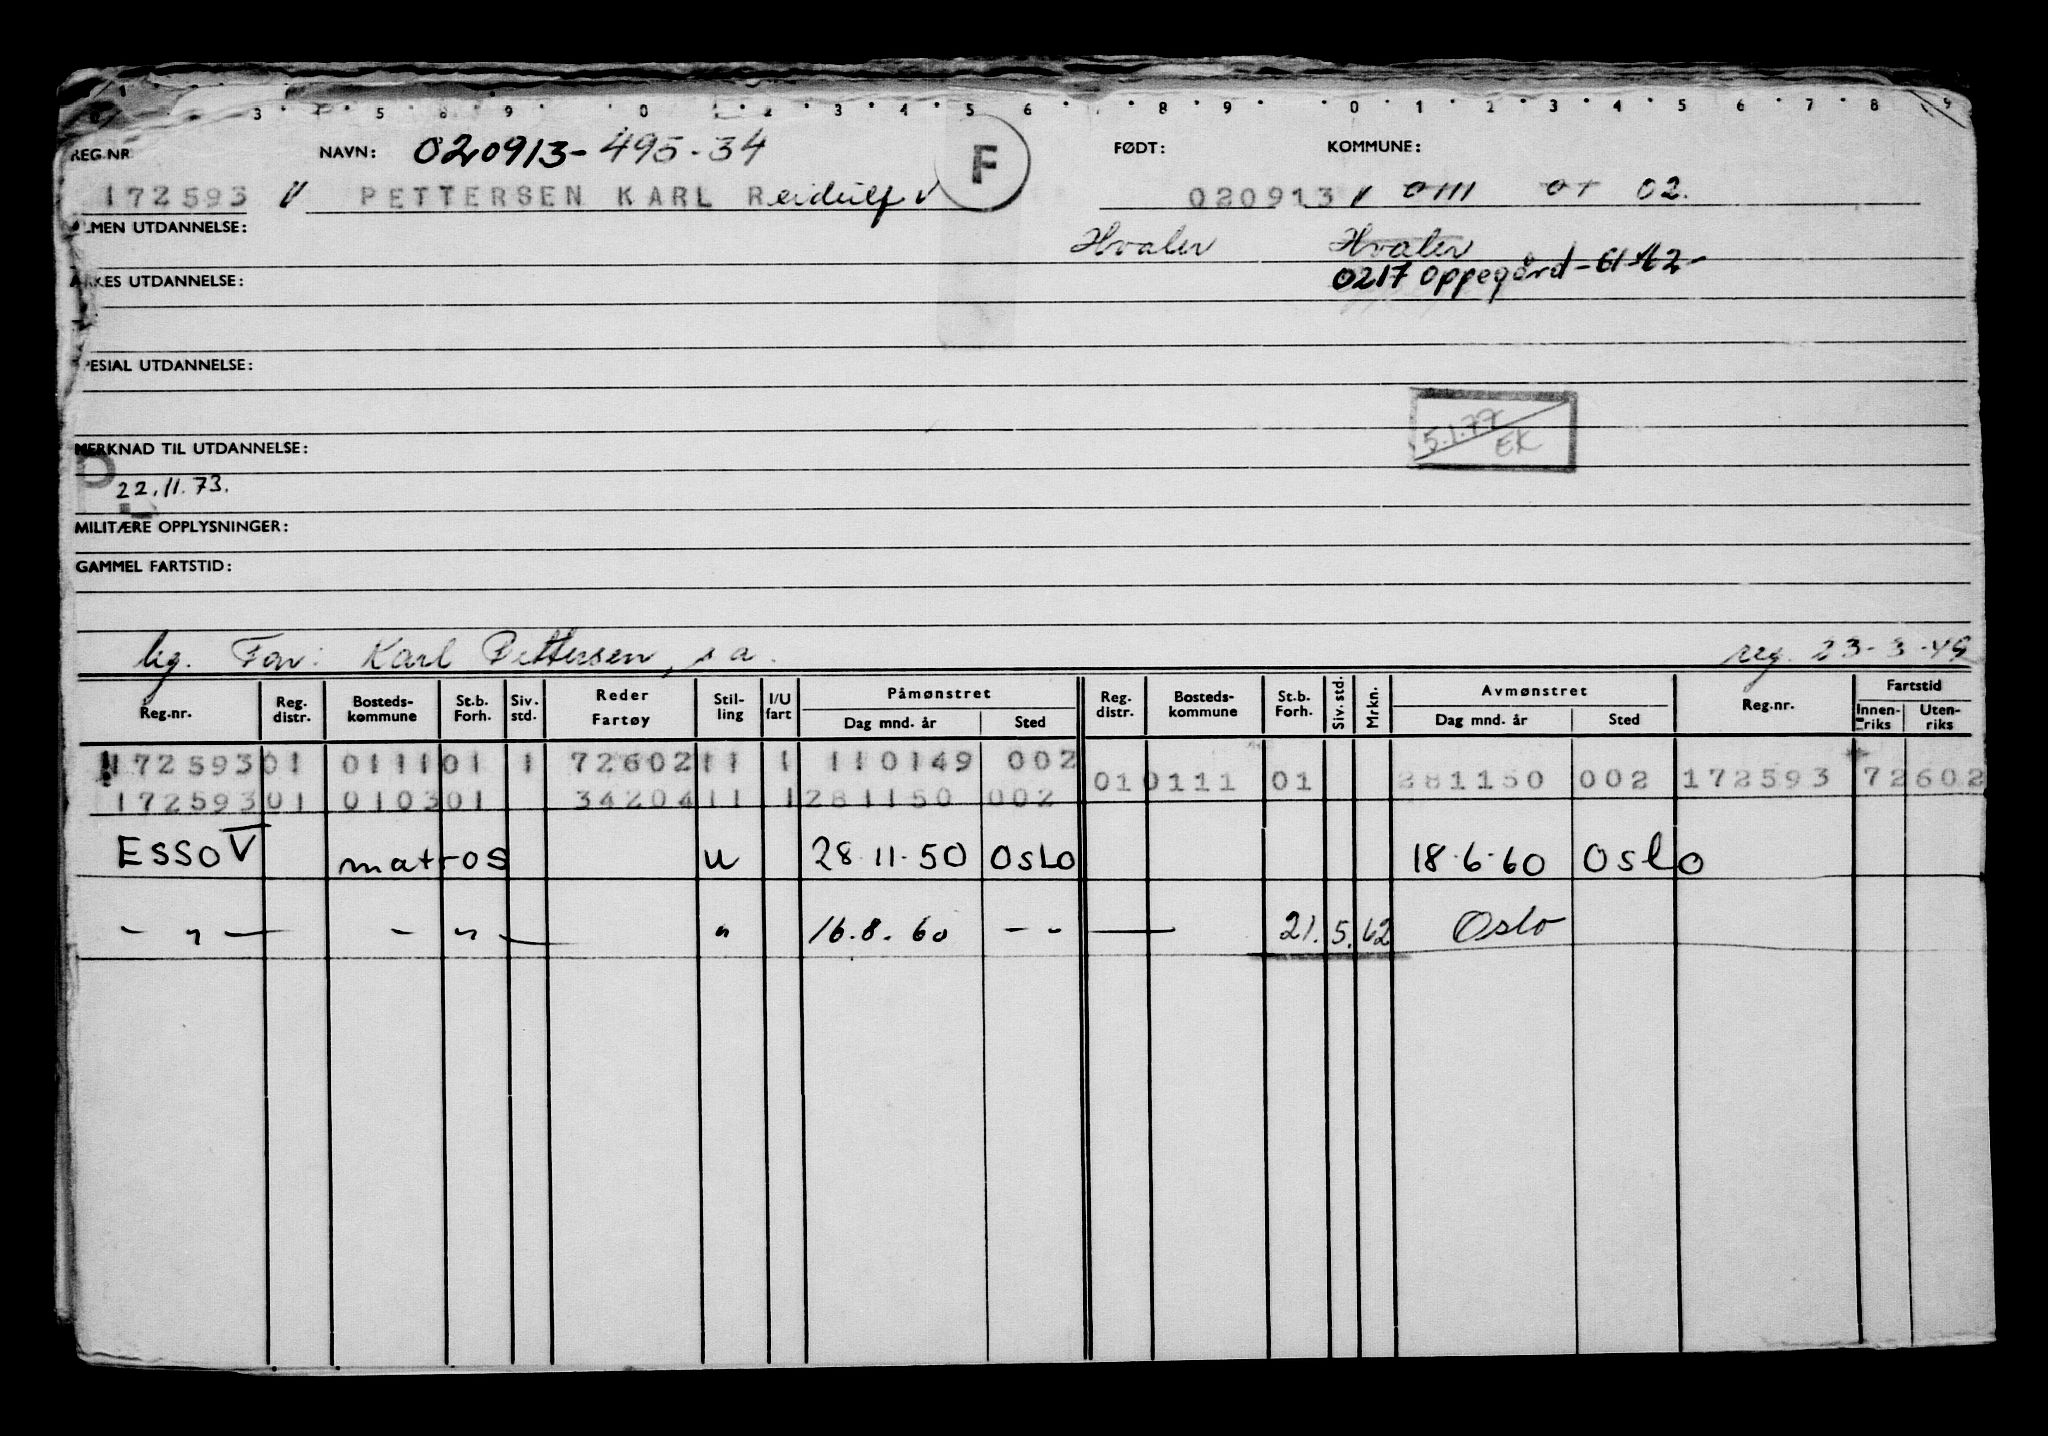 3 5 8 9 0 1 2 3 4 5 6 8 9 0 1 2 3 4 5 6 7 8 9
REG.NR NAVN: 020913-495-34 F FØDT: KOMMUNE:
172593 V PETTERSEN KARL Reidulf V 020913 V 0111 01 02.
LMEN UTDANNELSE: Hvaler Hvaler
RKES UTDANNELSE: 0217 Oppegård
PESIAL UTDANNELSE:
5.1.77 EK
MERKNAD TIL UTDANNELSE:
22.11.73.
MILITÆRE OPPLYSNINGER:
GAMMEL FARTSTID:
lig. For: Karl Pettersen, s a. reg. 23-3-49
Reg.nr. Reg. distr. Bosteds-kommune St.b. Forh. Siv. std. Reder Fartøy Stil-ling I/U fart Påmønstret Dag mnd. år Sted Reg. distr. Bosteds-kommune St.b. Forh. Siv. std. Mrkn. Avmønstret Dag mnd. år Sted Reg.nr. Fartstid Innen-riks Uten-riks
172593 01 0111 01 1 72602 11 1 110149 002
010111 01 281150 002 172593 72602
172593 01 0103 01 34204 11 1 281150 002
ESSO V matros u 28.11.50 OSLO 18.6.60 Oslo
- " - - " - " 16.8.60 - - 21.5.62 Oslo